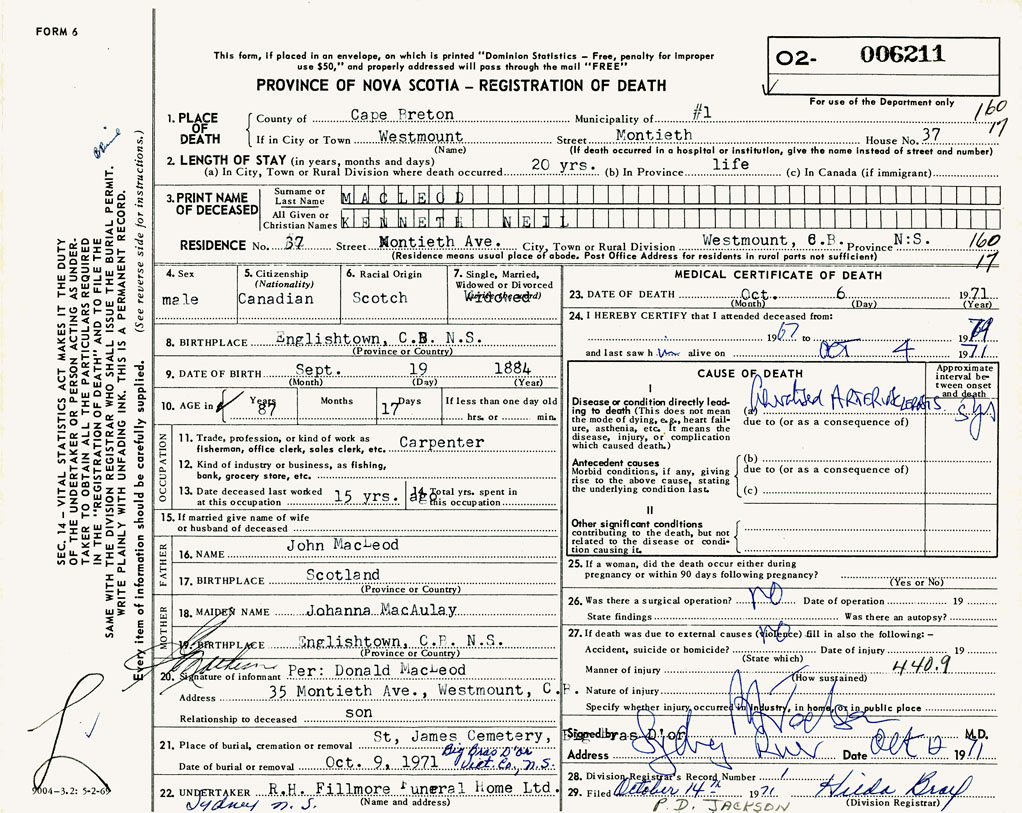 FORM 6
This form, if placed in an envelope, on which is printed "Dominion Statistics – Free, penalty for improper
use $50," and properly addressed will pass through the mail "FREE"
PROVINCE OF NOVA SCOTIA – REGISTRATION OF DEATH
O2- 006211
For use of the Department only
160
17
SEC. 14 – VITAL STATISTICS ACT MAKES IT THE DUTY
OF THE UNDERTAKER OR PERSON ACTING AS UNDER-
TAKER TO OBTAIN ALL THE PARTICULARS REQUIRED
IN THE "REGISTRATION OF DEATH" AND TO FILE THE
SAME WITH THE DIVISION REGISTRAR WHO SHALL ISSUE THE BURIAL PERMIT.
WRITE PLAINLY WITH UNFADING INK. THIS IS A PERMANENT RECORD.
Every item of information should be carefully supplied. (See reverse side for instructions.)
1. PLACE OF DEATH
County of Cape Breton Municipality of #1
If in City or Town Westmount Street Montieth House No. 37
(Name) (If death occurred in a hospital or institution, give the name instead of street and number)
2. LENGTH OF STAY (in years, months and days)
(a) In City, Town or Rural Division where death occurred 20 yrs. (b) In Province life (c) In Canada (if immigrant)
3. PRINT NAME OF DECEASED
Surname or Last Name MACLEOD
All Given or Christian Names KENNETH NEIL
RESIDENCE No. 37 Street Montieth Ave. City, Town or Rural Division Westmount, C.B. Province N.S. 160
(Residence means usual place of abode. Post Office Address for residents in rural parts not sufficient) 17
4. Sex
male
5. Citizenship
(Nationality)
Canadian
6. Racial Origin
Scotch
7. Single, Married,
Widowed or Divorced
Widowed
8. BIRTHPLACE Englishtown, C.B. N.S.
(Province or Country)
9. DATE OF BIRTH Sept. 19 1884
(Month) (Day) (Year)
10. AGE in Years 87 Months Days 17 If less than one day old
hrs. or min.
OCCUPATION
11. Trade, profession, or kind of work as
fisherman, office clerk, sales clerk, etc. Carpenter
12. Kind of industry or business, as fishing,
bank, grocery store, etc.
13. Date deceased last worked
at this occupation 15 yrs. ago
14. Total yrs. spent in
this occupation
15. If married give name of wife
or husband of deceased
FATHER
16. NAME John MacLeod
17. BIRTHPLACE Scotland
(Province or Country)
MOTHER
18. MAIDEN NAME Johanna MacAulay
19. BIRTHPLACE Englishtown, C.B. N.S.
(Province or Country)
20. Signature of informant Per: Donald MacLeod
Address 35 Montieth Ave., Westmount, C.B.
Relationship to deceased son
21. Place of burial, cremation or removal St, James Cemetery, Big Bras D'or
Big Bras D'or
Vict. Co., N.S.
Date of burial or removal Oct. 9, 1971
22. UNDERTAKER R.H. Fillmore Funeral Home Ltd.
(Name and address)
Sydney N.S.
9004-3.2: 5-2-69
MEDICAL CERTIFICATE OF DEATH
23. DATE OF DEATH Oct. 6 1971
(Month) (Day) (Year)
24. I HEREBY CERTIFY that I attended deceased from:
1967 to 19
and last saw him alive on Oct 4 1971
CAUSE OF DEATH
Approximate
interval be-
tween onset
and death
I
Disease or condition directly lead-
ing to death (This does not mean
the mode of dying, e.g., heart fail-
ure, asthenia, etc. It means the
disease, injury, or complication
which caused death.)
(a)
due to (or as a consequence of)
Antecedent causes
Morbid conditions, if any, giving
rise to the above cause, stating
the underlying condition last.
(b)
due to (or as a consequence of)
(c)
II
Other significant conditions
contributing to the death, but not
related to the disease or condi-
tion causing it.
25. If a woman, did the death occur either during
pregnancy or within 90 days following pregnancy?
(Yes or No)
26. Was there a surgical operation? no Date of operation 19
State findings Was there an autopsy?
27. If death was due to external causes (violence) fill in also the following: –
no
Accident, suicide or homicide? Date of injury 19
(State which)
Manner of injury 440.9
(How sustained)
Nature of injury
Specify whether injury occurred in Industry, in home, or in public place
Signed by M.D.
Address Sydney River Date Oct 1971
28. Division Registrar's Record Number 1
29. Filed October 14th 1971 Hilda
(Division Registrar)
P.D. JACKSON